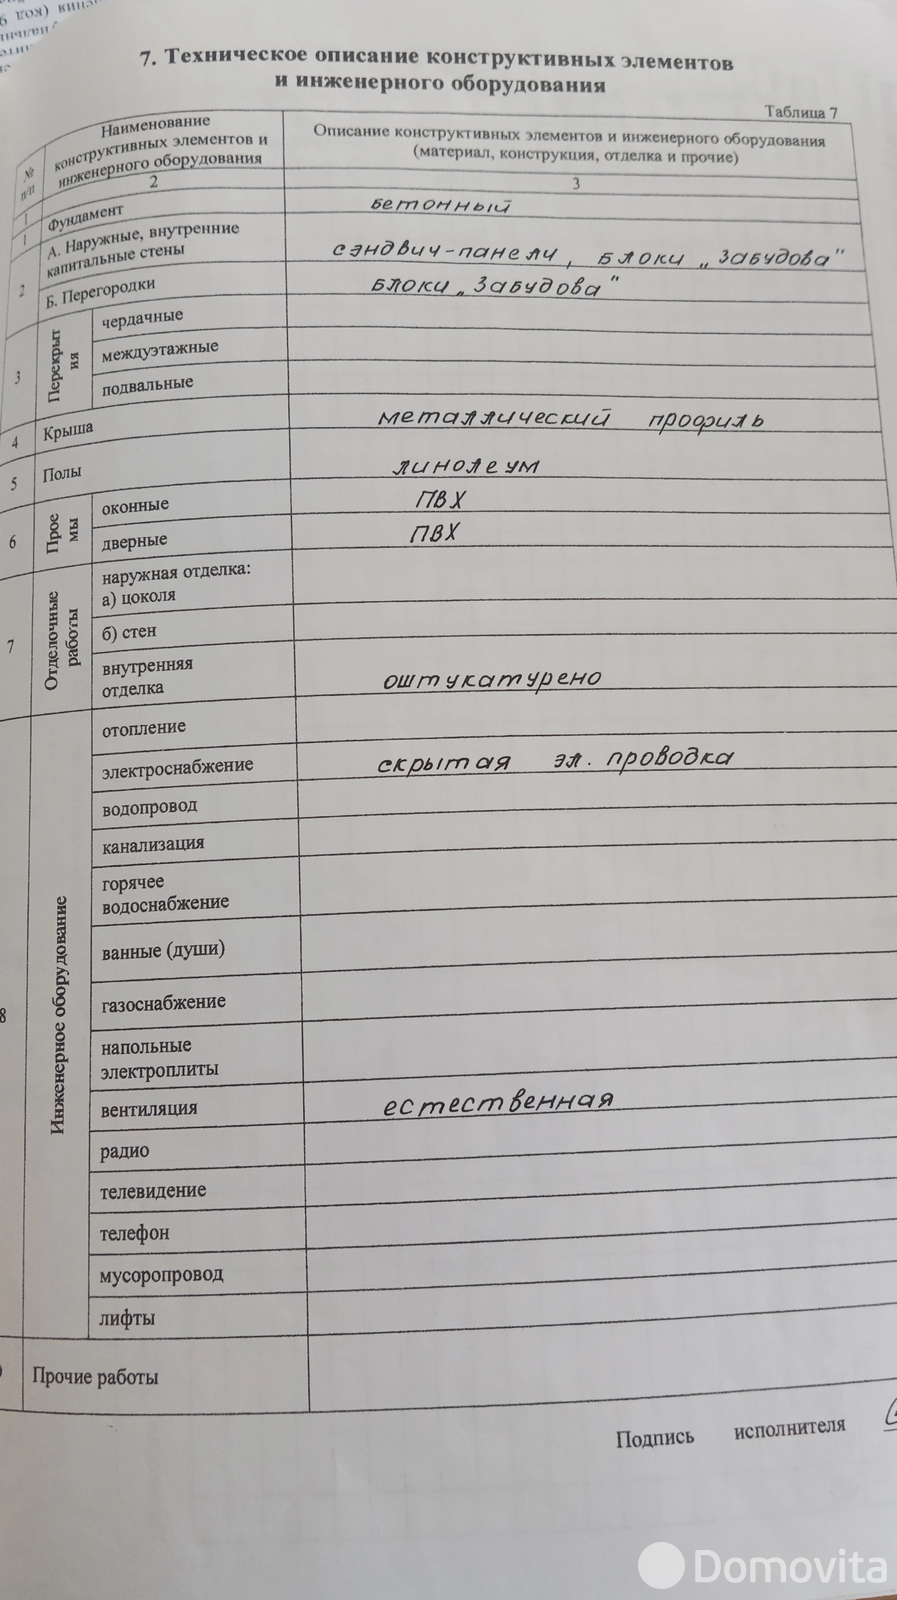 7. Техническое описание конструктивных элементов
и инженерного оборудования
Таблица 7
№
п/п
Наименование
конструктивных элементов и
инженерного оборудования
Описание конструктивных элементов и инженерного оборудования
(материал, конструкция, отделка и прочие)
1
2
3
1
Фундамент
бетонный
2
А. Наружные, внутренние
капитальные стены
сэндвич-панели, блоки „Забудова"
Б. Перегородки
блоки „Забудова"
3
Перекрыт
ия
чердачные
междуэтажные
подвальные
4
Крыша
металлический профиль
5
Полы
линолеум
6
Прое
мы
оконные
ПВХ
дверные
ПВХ
7
Отделочные
работы
наружная отделка:
а) цоколя
б) стен
внутренняя
отделка
оштукатурено
8
Инженерное оборудование
отопление
электроснабжение
скрытая эл. проводка
водопровод
канализация
горячее
водоснабжение
ванные (души)
газоснабжение
напольные
электроплиты
вентиляция
естественная
радио
телевидение
телефон
мусоропровод
лифты
Прочие работы
Подпись исполнителя
Domovita